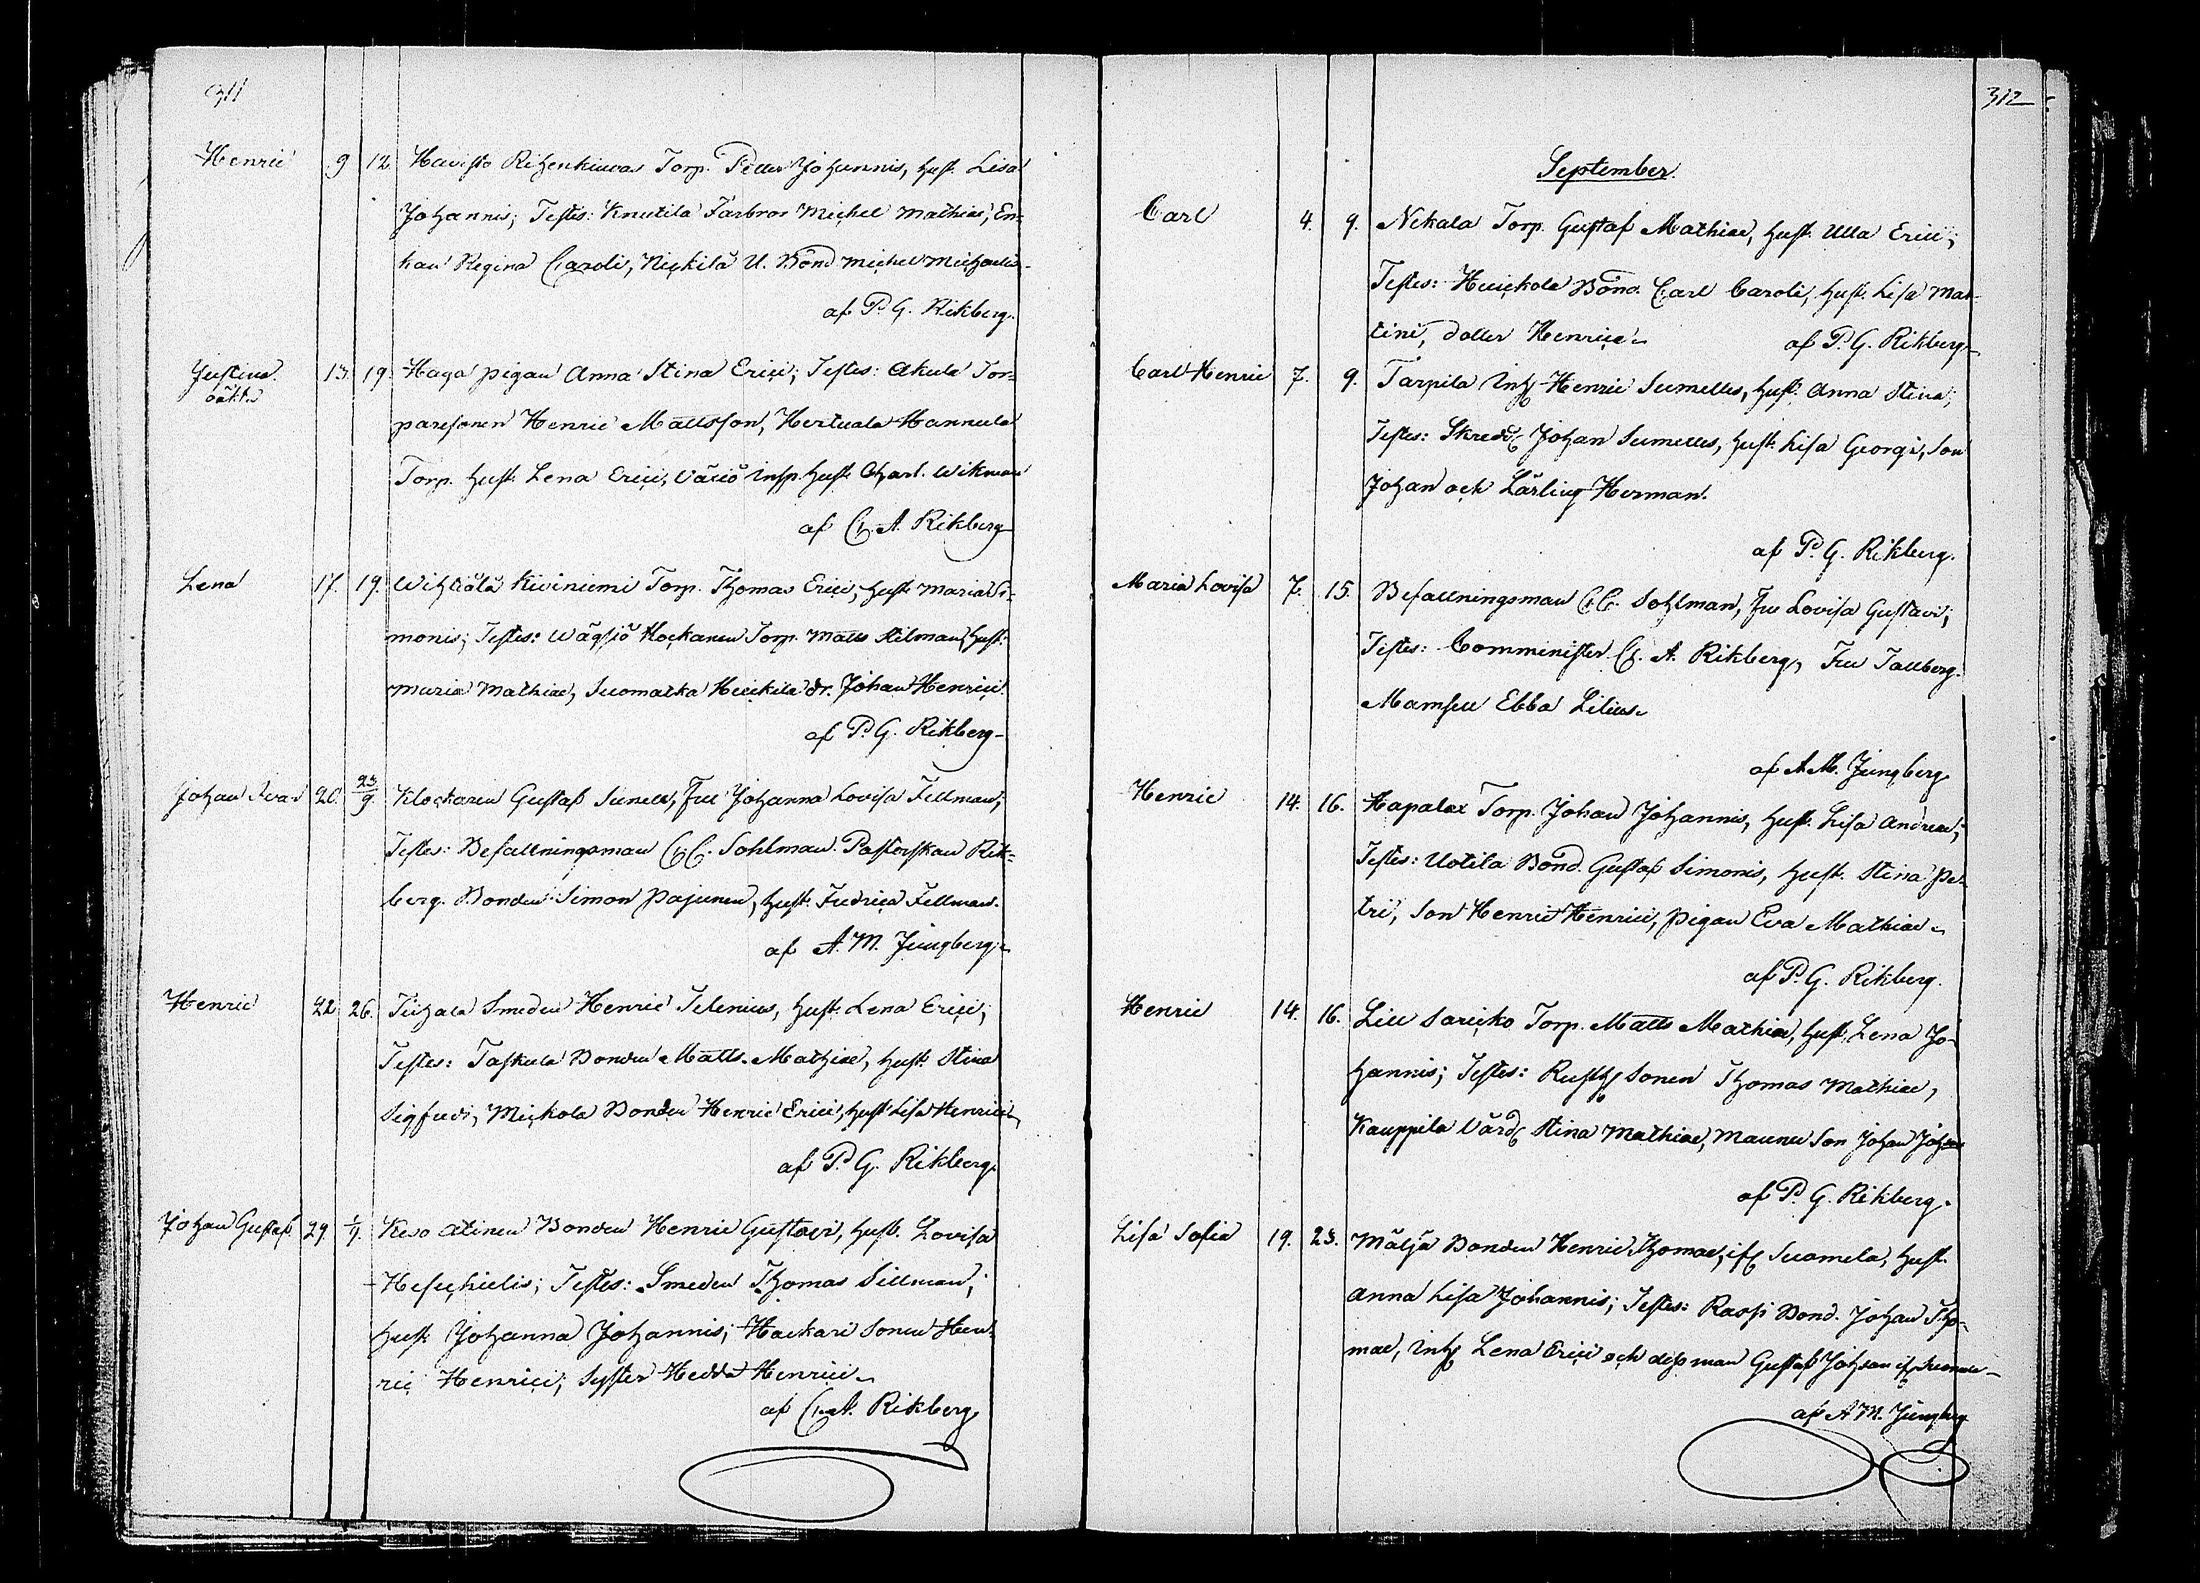 311
Henric 9 12. Havisto Ritzenkuivas Torp. Petter Johannis, hust. Lisa
Johannis; Testes: Knutila Farbror Michel Mathiae, En-
kan Regina Caroli, Nickilä U. Bond Michel Michaelis
af P. G. Rikberg.
Justina 13. 19. Haga pigan Anna Stina Erici; Testes: Akula Tor-
oäkta
paresonen Henric Mattsson, Hertuala Hannula
Torp. hust. Lena Erici, Vääriö insp. hust. Charl. Wikman
af C. A. Rikberg
Lena 17. 19. Wihtiälä Kiviniemi Torp. Thomas Erici, hust. Maria Si-
monis; Testes: Wägsiö Kockanen Torp. Matts Stilman, hust.
Maria Mathiae, Suomatka Heickilä dr. Johan Henrici
af P. G. Rikberg
Johan Ivar 20. 23/9. Klockaren Gustaf Sumell, Fru Johanna Lovisa Fellman;
Testes: Befallningsman C. C. Sohlman. Pastorskan Rik-
berg. Bonden Simon Pajunen, hust. Fredrica Fellman.
af A. M. Jungberg
Henric 22. 26. Tiihala Smeden Henric Telenius, hust. Lena Erici;
Testes: Taskula Bonden Matts Mathiae, hust. Stina
Sigfredi, Mickola Bonden Henric Erici, hust. Lisa Henrici
af P. G. Rikberg.
Johan Gustaf 29 1/9. Keso Atinen Bonden Henric Gustavi, hust. Lovisa
Hesechielis; Testes: Smeden Thomas Sillman,
hust. Johanna Johannis; Hackari Sonen Hen-
ric Henrici; Syster Hedda Henrici
af C. A. Rikberg
312
September.
Carl 4. 9. Nekala Torp. Gustaf Mathiae, hust. Ulla Erici;
Testes: Heickola Bond. Carl Caroli, hust. Lisa Mar-
tini, dotter Henrica
af P. G. Rikberg
Carl Henric 7. 9. Tarpila Inh Henric Sumelles, hust. Anna Stina;
Testes: Skredd Johan Sumelles, hust. Lisa Georgi, Son
Johan och Lärling Herman.
af P. G. Rikberg.
Maria Lovisa 7. 15. Befallningsman C. C. Sohlman, Fru Lovisa Gustavi;
Testes: Comminister C. A. Rikberg, Fru Tallberg.
Mamsell Ebba Lilius
af A. M. Jungberg
Henric 14. 16. Hapalax Torp. Johan Johannis, hust. Lisa Andreae;
Testes: Uotila Bond. Gustaf Simonis, hust. Stina Pe-
tri, Son Henric Henrici, pigan Eva Mathiae
af P. G. Rikberg.
Henric 14. 16. Lill Saricko Torp. Matts Mathiae, hust. Lena Jo-
hannis; Testes: Rusth Sonen Thomas Mathiae,
Kauppila Värd Stina Mathiae, Maunu Son Johan Johan
af P. G. Rikberg.
Lisa Sofia 19. 23. Mäljä Bonden Henric Thomae, if Suomela, hust.
Anna Lisa Johannis; Testes: Rassi Bond. Johan Tho-
mae, Inh Lena Erici och dess man Gustaf Johan if
af A. M. Jungberg